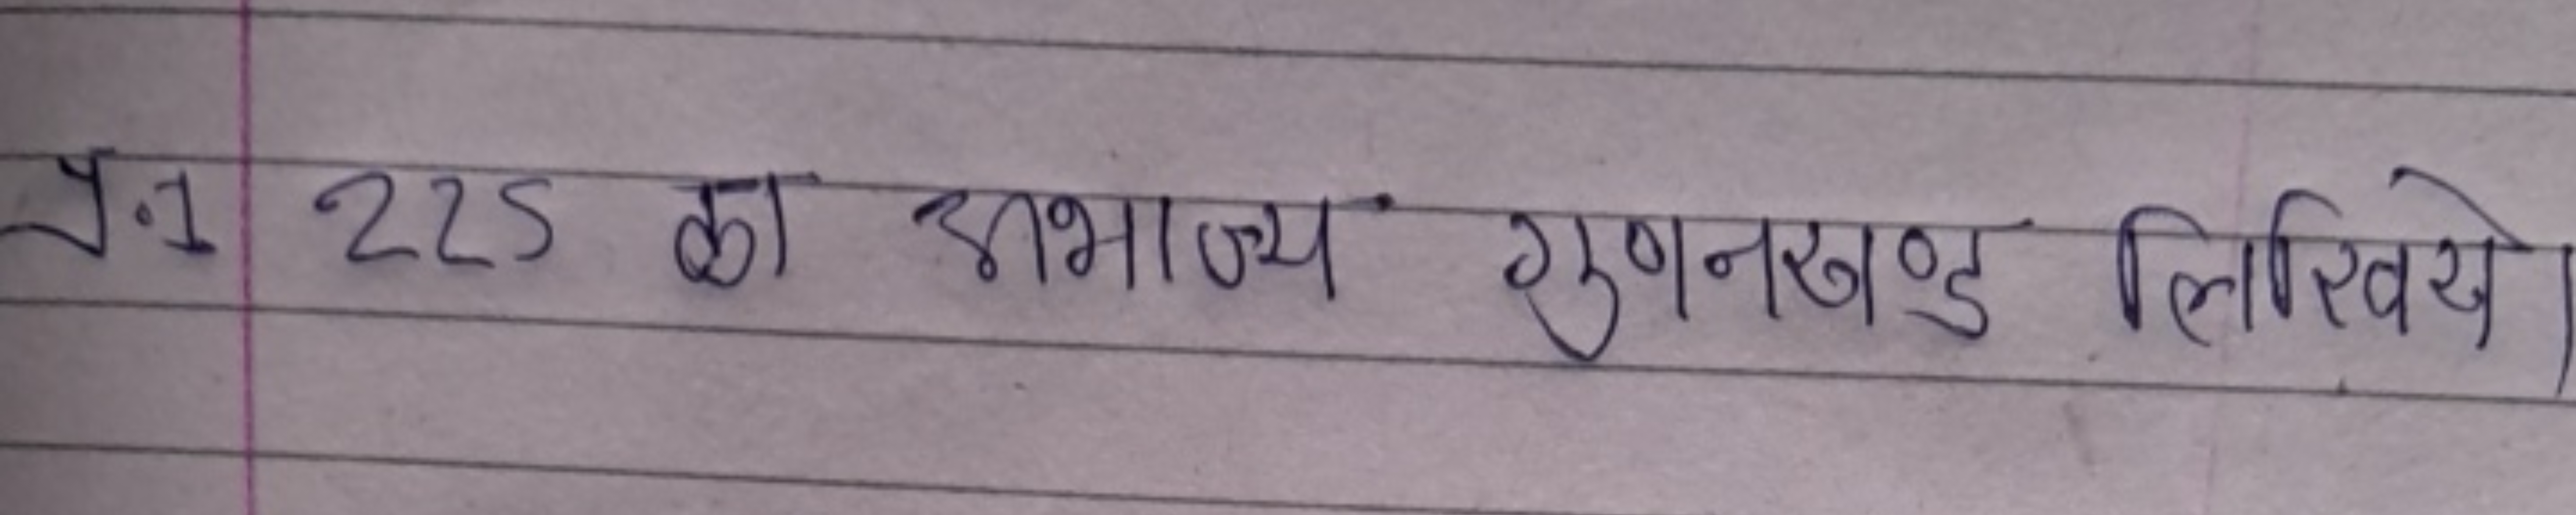 प्र.1 225 का अभाज्य गुणनखण्ड लिखिये।